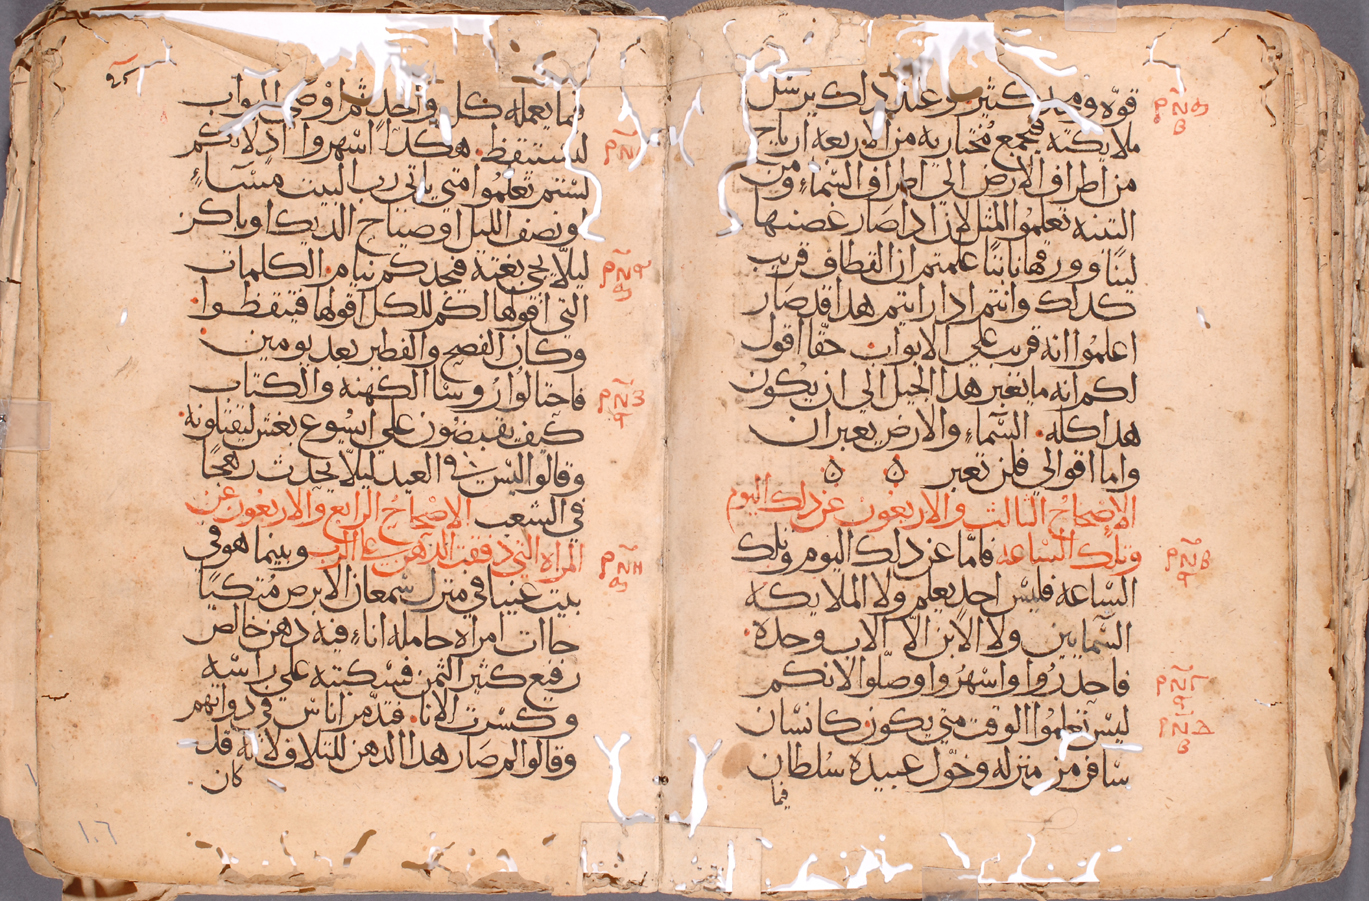 قوه ومجد كثير وعند ذلك يرسل
ملايكته فيجمع مختاريه من الاربعه ارياح
من اطراف الارض الي اطراف السماء ومن
التينه تعلموا المثل لان اذا صار غصنها
لينًا وورقها نابتًا علمتم ان القطاف قريب
كذلك وانتم اذا رايتم هذا قد صار
اعلموا انه قريب علي الابواب حقًا اقول
لكم انه ما يعبر هذا الجيل الي ان يكون
هذا كله السماء والارض يعبران
واما اقوالي فلن تعبر
الاصحاح الثالث والاربعون عن ذلك اليوم
وتلك الساعه فامّا عن ذلك اليوم وتلك
الساعه فليس احد يعلم ولا الملايكه
السمايين ولا الابن الّا الاب وحده
فاحذروا واسهروا وصلّوا لانكم
ليس تعلموا الوقت متي يكون كانسان
سافر من منزله وخوّل عبيده سلطان
فيما
فيما يعمله كل واحد ثم اوصي البواب
ليستيقظ هكذا اسهروا اذ لانكم
لستم تعلموا متي ياتي رب البيت مساءً
او نصف الليل او صياح الديك او باكر
ليلّا يجي بغته فيجدكم نيام الكلمات
التي اقولها لكم للكل اقولها فتيقظوا
وكان الفصح والفطير بعد يومين
فاحتالوا روسا الكهنه والكتاب
كيف يقبضون علي ايسوع بغش ليقتلونه
وقالوا ليس في العيد ليلّا يحدث رهجًا
في الشعب الاصحاح الرابع والاربعون عن
المراه التي دفقت الدهن علي الرب وبينما هو في
بيت عنيا في منزل سمعان الابرص متكيًا
جاات امراه حامله اناء فيه دهن خالص
رفيع كثير الثمن فسكبته علي راسه
وكسرت الانا فتدمّر اناس في ذواتهم
وقالوا لم صار هذا الدهن للتلاف لانه قد
كان
١٦